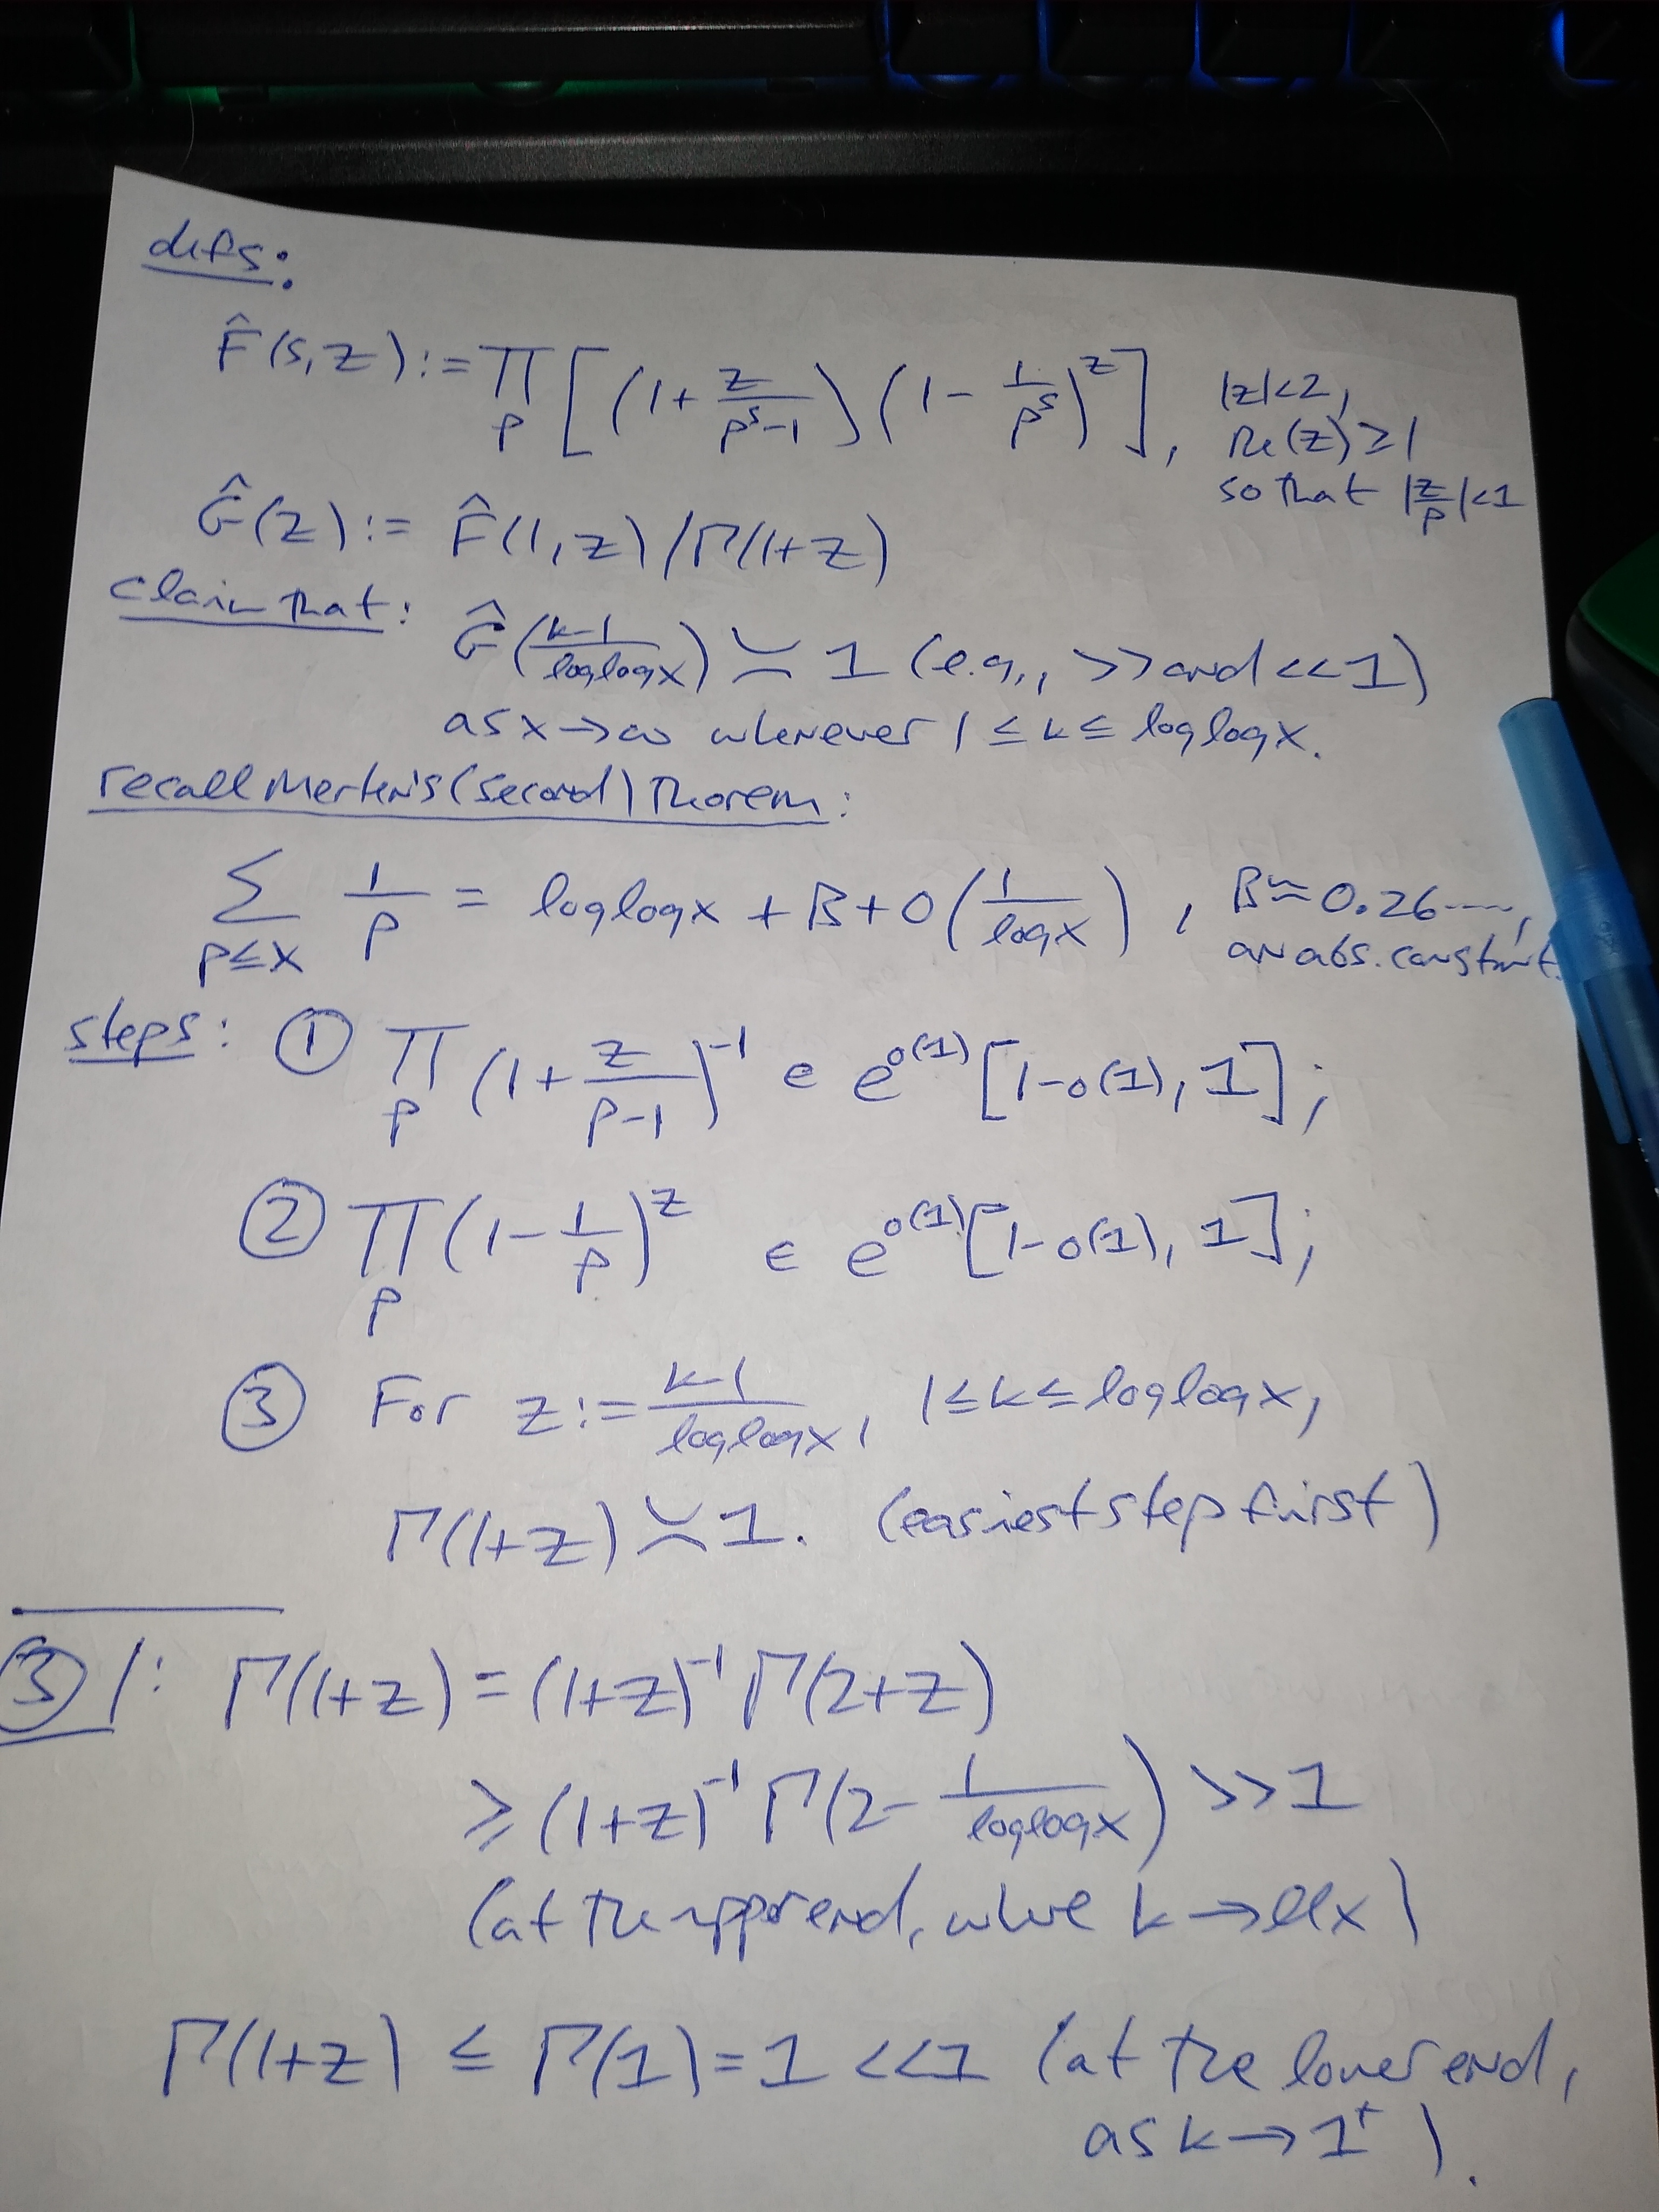 defs:
F̂(s,z) := ∏_p [(1 + z/(p^s-1)) (1 - 1/p^s)^z], |z|<2,
Re(z) ≥ 1
so that |z/p|<1
Ĝ(z) := F̂(1,z)/Γ(1+z)
claim that: Ĝ((k-1)/(loglogx)) ≍ 1 (e.g., >> and << 1)
as x→∞ whenever 1 ≤ k ≤ loglogx.
recall Merten's (second) Thorem:
∑_{p≤x} 1/p = loglogx + B + O(1/logx), B≈0.26----,
an abs. constant.
steps: ① ∏_p (1 + z/(p-1))^{-1} ∈ e^{o(1)} [1-o(1), 1];
② ∏_p (1 - 1/p)^z ∈ e^{o(1)} [1-o(1), 1];
③ For z := (k-1)/(loglogx), 1≤k≤loglogx,
Γ(1+z) ≍ 1. (easiest step first)
③/: Γ(1+z) = (1+z)^{-1} Γ(2+z)
≥ (1+z)^{-1} Γ(2 - 1/(loglogx)) >> 1
(at the upper end, where k→llx)
Γ(1+z) ≤ Γ(1) = 1 << 1 (at the lower end,
as k→1^+).